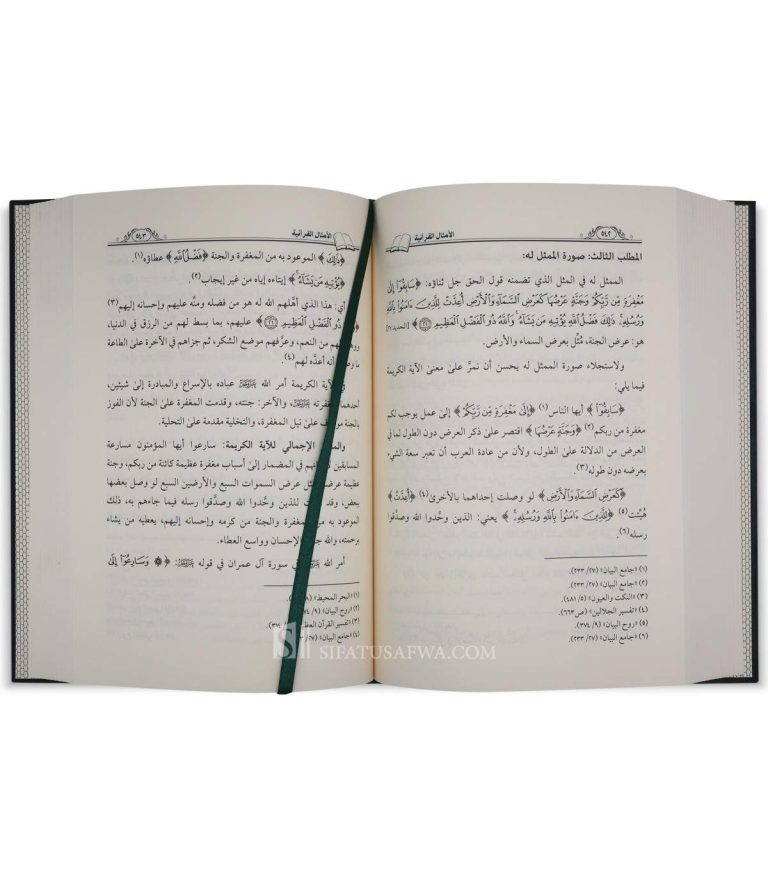 ٥٤٢
الأمثال القرآنية
المطلب الثالث: صورة الممثل له:
الممثل له في المثل الذي تضمنه قول الحق جل ثناؤه: ﴿سَابِقُوٓا۟ إِلَىٰ
مَغْفِرَةٍ مِّن رَّبِّكُمْ وَجَنَّةٍ عَرْضُهَا كَعَرْضِ ٱلسَّمَآءِ وَٱلْأَرْضِ أُعِدَّتْ لِلَّذِينَ ءَامَنُوا۟ بِٱللَّهِ
وَرُسُلِهِۦ ۚ ذَٰلِكَ فَضْلُ ٱللَّهِ يُؤْتِيهِ مَن يَشَآءُ ۚ وَٱللَّهُ ذُو ٱلْفَضْلِ ٱلْعَظِيمِ ﴿٢١﴾ [الحديد:
هو: عرض الجنة، مُثِّل بعرض السماء والأرض.
ولاستجلاء صورة الممثل له يحسن أن نمرَّ علىٰ معنىٰ الآية الكريمة
فيما يلي:
﴿سَابِقُوٓا۟﴾ أيها الناس(١) ﴿إِلَىٰ مَغْفِرَةٍ مِّن رَّبِّكُمْ﴾ إلىٰ عمل يوجب لكم
مغفرة من ربكم(٢) ﴿وَجَنَّةٍ عَرْضُهَا﴾ اقتصر علىٰ ذكر العرض دون الطول لما في
العرض من الدلالة علىٰ الطول، ولأن من عادة العرب أن تعبر سعة الشيء
بعرضه دون طوله(٣).
﴿كَعَرْضِ ٱلسَّمَآءِ وَٱلْأَرْضِ﴾ لو وصلت إحداهما بالأخرىٰ(٤) ﴿أُعِدَّتْ﴾
هُيِّئت(٥) ﴿لِلَّذِينَ ءَامَنُوا۟ بِٱللَّهِ وَرُسُلِهِۦ ۚ﴾ يعني: الذين وحَّدوا الله وصدَّقوا
رسله(٦).
(١) «جامع البيان» (٢٧/ ٢٣٣).
(٢) «جامع البيان» (٢٧/ ٢٣٣).
(٣) «النكت والعيون» (٥/ ٤٨١).
(٤) «تفسير الجلالين» (ص٦٦٣).
(٥) «روح البيان» (٩/ ٣٧٤).
(٦) «جامع البيان» (٢٧/ ٢٣٣).
الأمثال القرآنية
٥٤٣
﴿ذَٰلِكَ﴾ الموعود به من المغفرة والجنة ﴿فَضْلُ ٱللَّهِ﴾ عطاؤه(١).
﴿يُؤْتِيهِ مَن يَشَآءُ ۚ﴾ إيتاءه إياه من غير إيجاب(٢).
أي: هذا الذي أهَّلهم الله له هو من فضله ومنِّه عليهم وإحسانه إليهم(٣)
ذُو ٱلْفَضْلِ ٱلْعَظِيمِ ﴿٢١﴾ عليهم، بما بسط لهم من الرزق في الدنيا،
من النعم، وعرَّفهم موضع الشكر، ثم جزاهم في الآخرة علىٰ الطاعة
أنه أعدَّه لهم(٤).
الآية الكريمة أمر الله عباده بالإسراع والمبادرة إلى شيئين،
أحدهما مغفرته والآخر: جنته، وقدمت المغفرة علىٰ الجنة لأن الفوز
بالجنة علىٰ نيل المغفرة، والتخلية مقدمة علىٰ التحلية.
الإجمالي للآية الكريمة: سارعوا أيها المؤمنون مسارعة
المسابقين في المضمار إلىٰ أسباب مغفرة عظيمة كائنة من ربكم، وجنة
عظيمة عرض السموات السبع والأرضين السبع لو وصل بعضها
بعض، وقد للذين وحَّدوا الله وصدَّقوا رسله فيما جاءهم به، ذلك
لموعود به من المغفرة والجنة من كرمه وإحسانه إليهم، يعطيه من يشاء
برحمته، والله الإحسان وواسع العطاء.
أمر الله في سورة آل عمران في قوله ﴿۞ وَسَارِعُوٓا۟ إِلَىٰ
(١) «البحر المحيط»
(٢) «روح البيان» (٩/ ٣٧٤).
(٣) «تفسير القرآن
(٤) «جامع البيان» (٢٧/
SIFATUSAFWA.COM